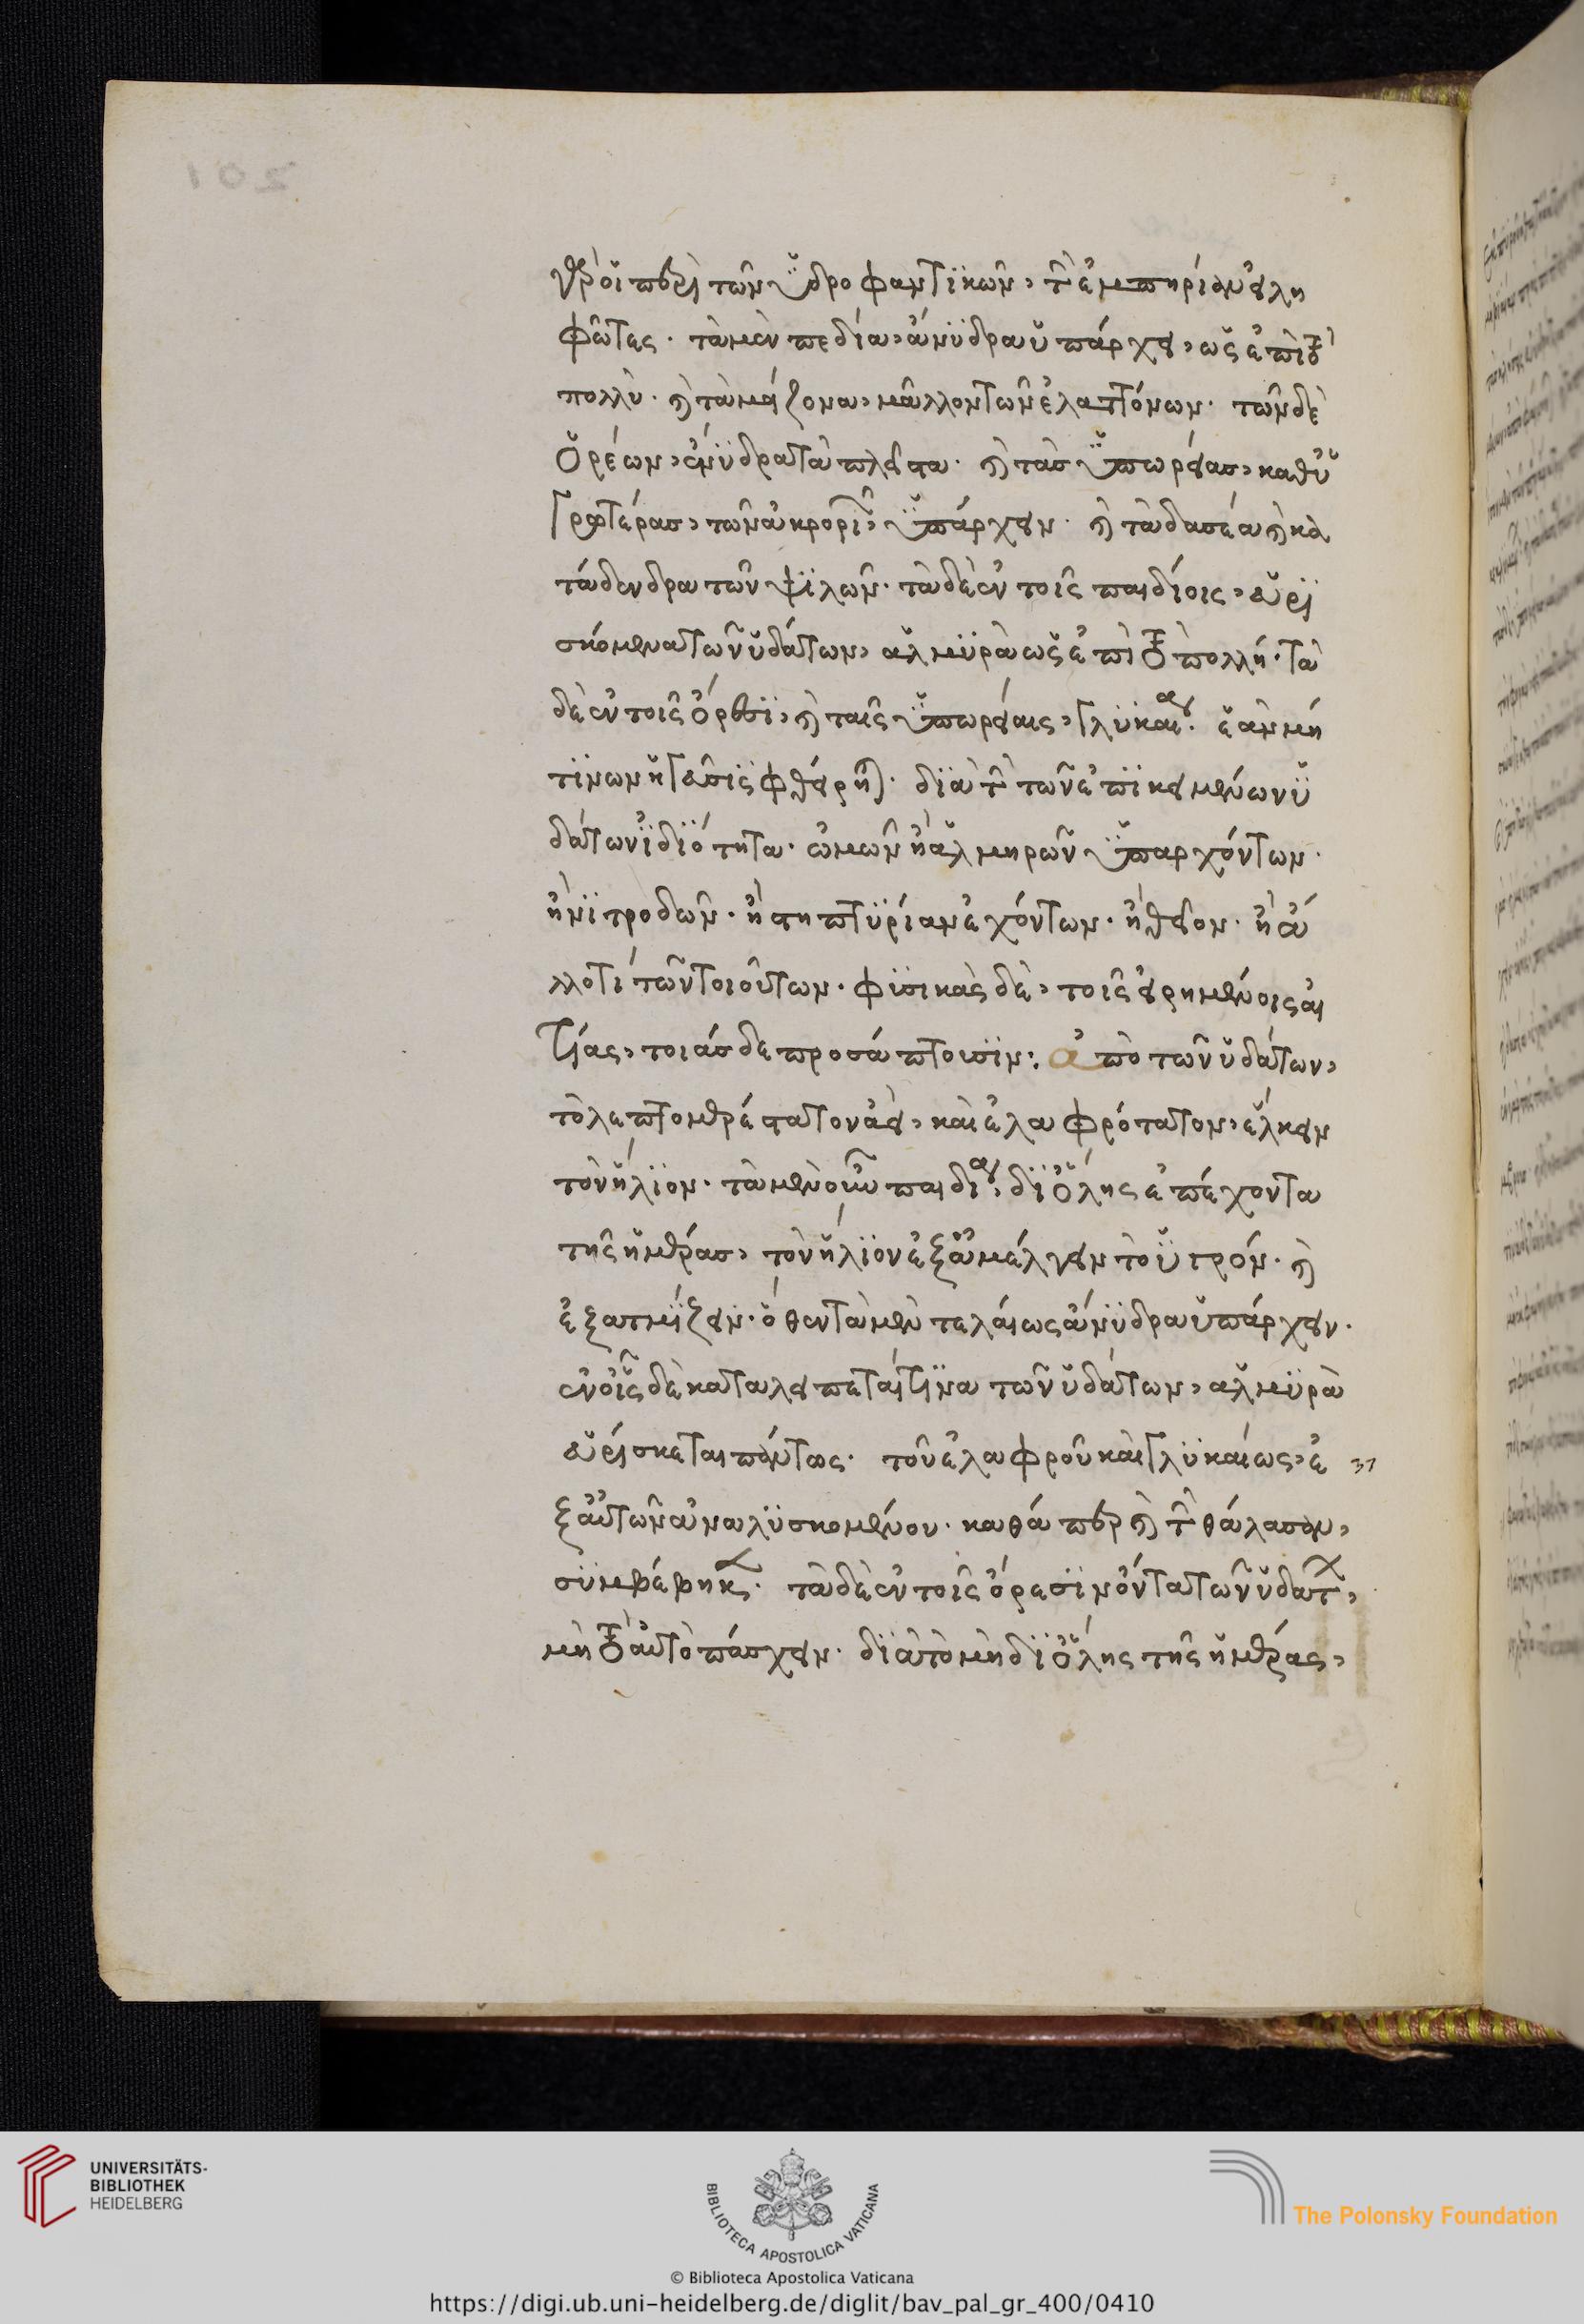 201
θροι περὶ τῶν ὑδροφαντϊκῶν, τὴν ἐμπηρίαν εἰλη
φῶτες. τὰ μὲν πεδία, ἄνϋδρα ὑπάρχει, ὡς ἐπὶ τὸ
πολλὺ. καὶ τὰ μείζονα, μᾶλλον τῶν ἐλαττόνων. τῶν δὲ
ὀρέων, ἔνϋδρα τὰ πλεῖστα. καὶ τὰσ ὑπωρείασ, καθϋ
γροτέρασ, τῶν ἀκρορϊῶν, ὑπάρχειν. καὶ τὰ δασέα καὶ κα
τάδενδρα τῶν ψϊλῶν. τὰ δὲ ἐν τοῖς παιδίοις, εὑρι
σκόμενα τῶν ὑδάτων, ἁλμϋρὰ ὡς ἐπὶ τὸ πολλή. τὰ
δὲ ἐν τοῖς ὄρεσϊ, καὶ ταῖς ὑπωρείαις, γλϋκαία. ἐὰν μή
τϊνων ἡ γεῦσϊς φθείρηται. δϊὰ τὴν τῶν ἐπϊκειμένων ὑ
δάτων ἰδϊότητα. ὠμῶν ἢ ἁλμηρῶν ὑπαρχόντων.
ἢ νϊτροδῶν. ἢ στηπτϋρίαν ἐχόντων. ἢ θεῖον. ἢ ἄ
λλο τι τῶν τοιοῦτων. φϋσικὰς δὲ, τοῖς εἰρημένοις αἰ
τίας, τοιάσδε προσάπτοισϊν: ἀπὸ τῶν ὑδάτων,
τὸ λεπτομερέστατον ἀεὶ, καὶ ἐλαφρότατον, ἕλκειν
τὸν ἥλϊον. τὰ μὲν οὖν παιδία, δϊ ὅλης ἐπέχοντα
τῆς ἡμέρασ, τὸν ἥλϊον ἐξαμέλγειν τὸ ὑγρόν. καὶ
ἐξατμϊζειν. ὅθεν τὰ μὲν τελέως ἄνϋδρα ὑπάρχειν.
ἐν οἷς δὲ καταλείπεταί τϊνα τῶν ὑδάτων, ἁλμϋρὰ
εὑρίσκεται πάντως. τοῦ ἐλαφροῦ καὶ γλϋκαίως, ἐ
ξ αὐτῶν ἀναλϋσκομένου. καθάπερ καὶ τὴν θάλασαν,
σϋμβέβηκε. τὰ δὲ ἐν τοῖς ὄρεσϊν ὄντα τῶν ὑδάτων,
μὴ τὸ αὐτὸ πάσχειν. δϊὰ τὸ μὴ δϊ ὅλης τῆς ἡμέρας,
UNIVERSITÄTS-
BIBLIOTHEK
HEIDELBERG
BIBLIOTECA APOSTOLICA VATICANA
The Polonsky Foundation
© Biblioteca Apostolica Vaticana
https://digi.ub.uni-heidelberg.de/diglit/bav_pal_gr_400/0410